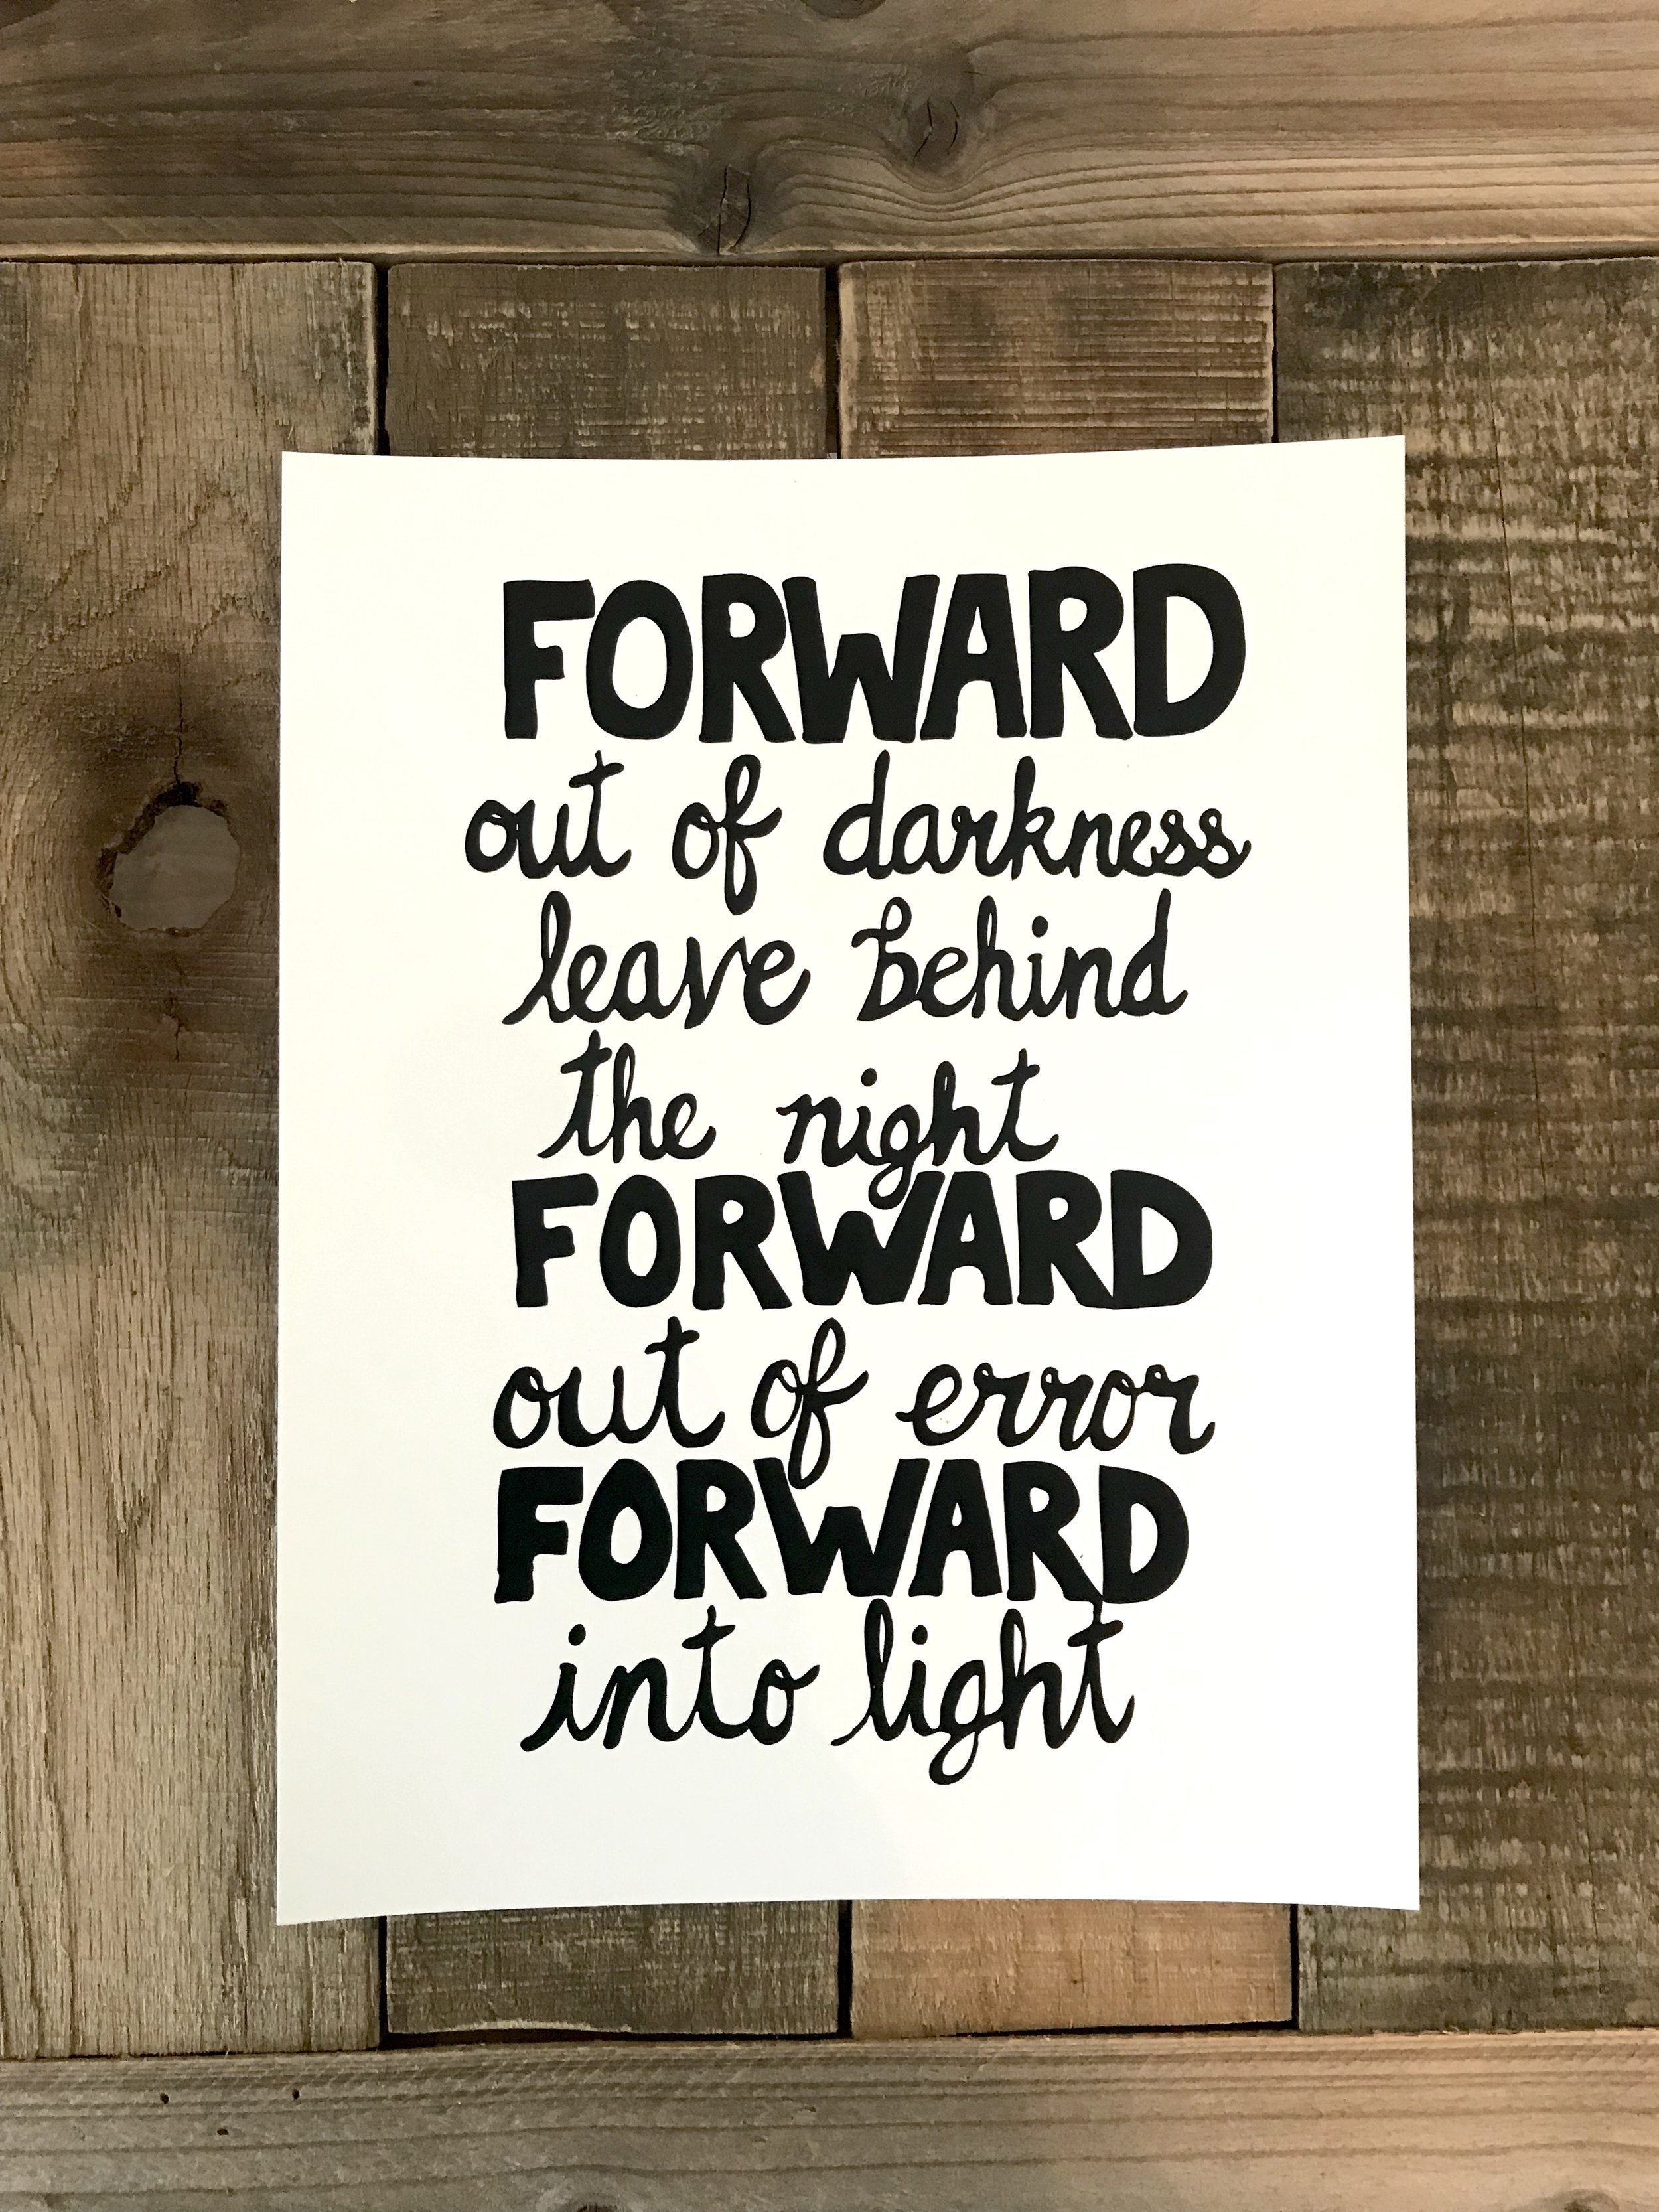 FORWARD
out of darkness
leave behind
the night
FORWARD
out of error
FORWARD
into light